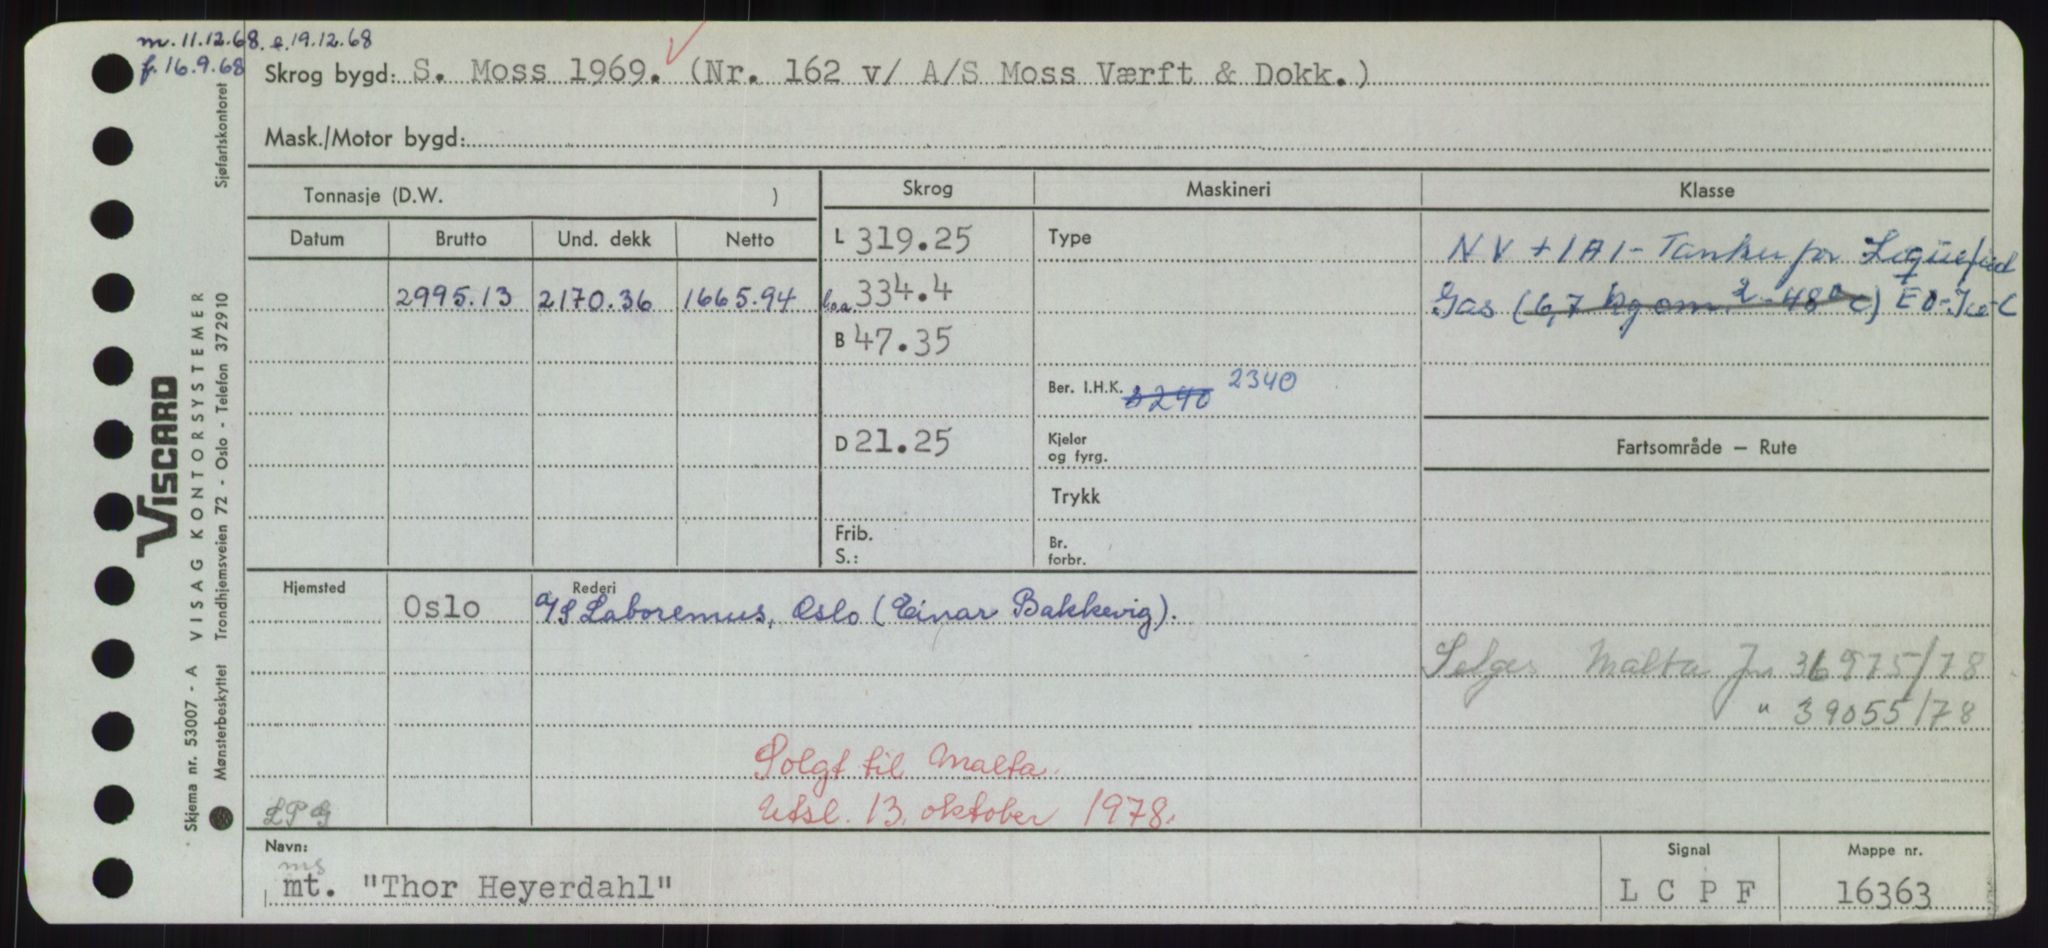 m. 11.12.68. e. 19.12.68
f. 16.9.68
Skrog bygd: S. Moss 1969. (Nr. 162 v/ A/S Moss Værft & Dokk.)
Mask./Motor bygd:
Tonnasje (D.W. )
Skrog
Maskineri
Klasse
Datum
Brutto
Und. dekk
Netto
L 319.25
Type
NV + 1A1 - Tanker for Liquefied
2995.13
2170.36
1665.94
loa. 334.4
Gas (6,7 kg cm 2 - 48° C) E0-Ice-C
B 47.35
Ber. I.H.K. 3240 2340
D 21.25
Kjeler
og fyrg.
Fartsområde — Rute
Trykk
Frib.
S.:
Br.
forbr.
Hjemsted
Oslo
Rederi
A/S Laboremus, Oslo (Einar Bakkevig).
Selges Malta Jnr 36975/78
" 39055/78
Solgt til Malta.
Utsl. 13. oktober 1978.
LPG
Navn:
ms
mt. "Thor Heyerdahl"
Signal
L C P F
Mappe nr.
16363
VISCARD
Skjema nr. 53007 - A VISAG KONTORSYSTEMER
Mønsterbeskyttet Trondhjemsveien 72 - Oslo - Telefon 372910 Sjøfartskontoret